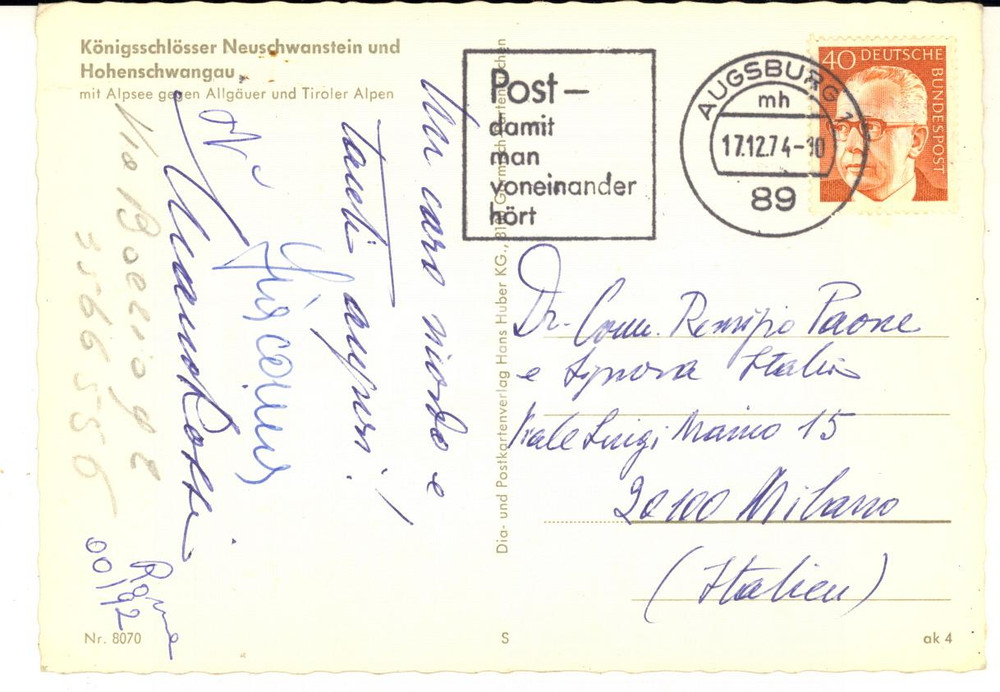 Königsschlösser Neuschwanstein und
Hohenschwangau,
mit Alpsee gegen Allgäuer und Tiroler Alpen
Post –
damit
man
voneinander
hört
AUGSBURG 1
mh
17.12.74-10
89
40 DEUTSCHE BUNDESPOST
Un caro ricordo e
tanti auguri!
Via Boezio 92
Roma
00192
Dia- und Postkartenverlag Hans Huber KG., 81 Garmisch-Partenkirchen
Dr. Comm. Remigio Paone
e Signora Italia
Viale Luigi Maino 15
20100 Milano
(Italien)
Nr. 8070
S
ak 4